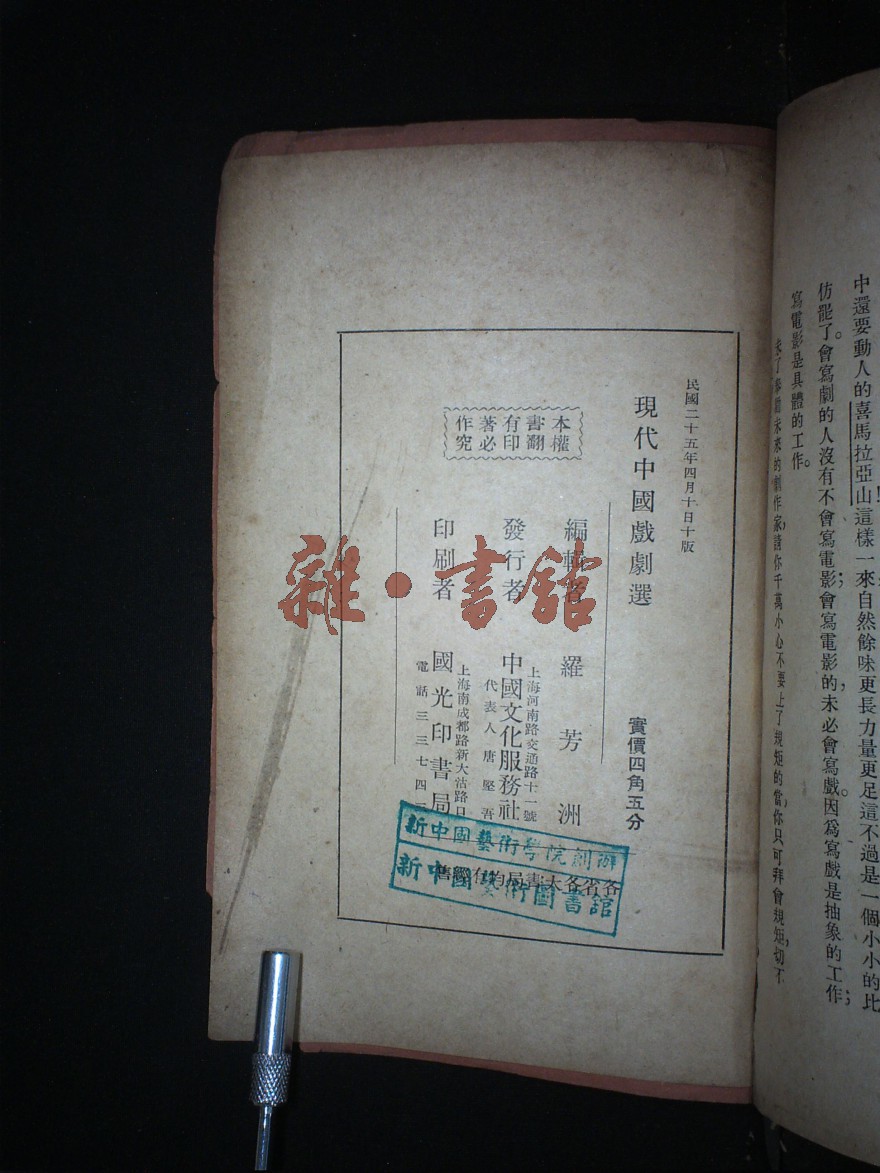 中還要動人的喜馬拉亞山！這樣一來自然餘味更長力量更足這不過是一個小小的比
仿罷了。會寫劇的人沒有不會寫電影；會寫電影的，未必會寫戲。因爲寫戲是抽象的工作；
寫電影是具體的工作。
未來的劇作家，請你千萬小心不要上了規矩的當，你只可拜會規矩，切不
民國二十五年四月十日十版
現代中國戲劇選
實價四角五分
本書有著作
權翻印必究
編輯者 羅芳洲
上海河南路交通路十一號
發行者 中國文化服務社
代表人唐堅吾
上海南成都路新大沽路口
印刷者 國光印書局
電話三三七四三
各省各大書局均有經售
新中國藝術學院創辦
新中國藝術圖書舘
雜·書舘